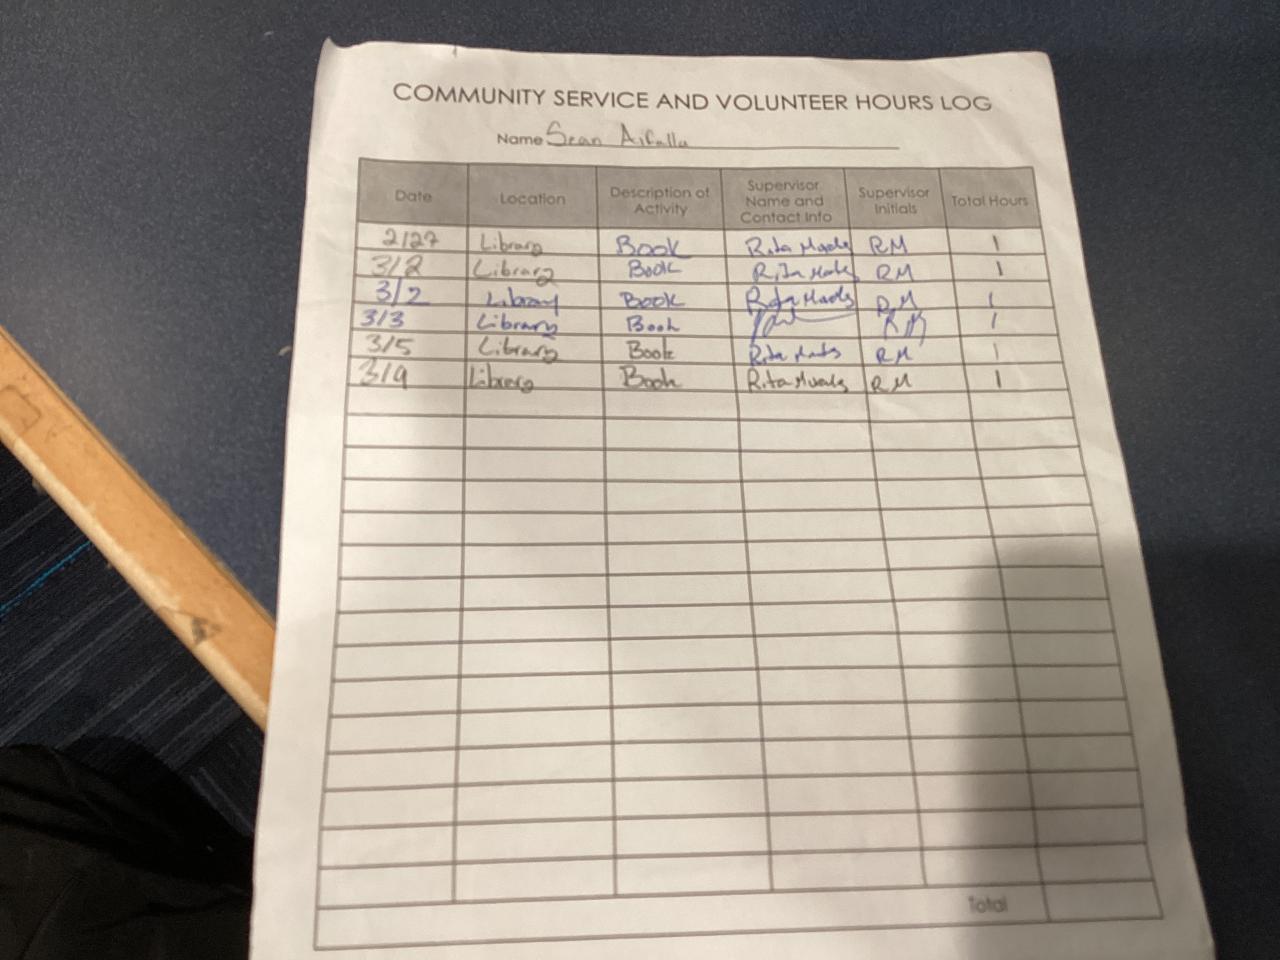 COMMUNITY SERVICE AND VOLUNTEER HOURS LOG
Name Sean
Date Location Description of Activity Supervisor Name and Contact Info Supervisor Initials Total Hours
2/27 Library Book Rita RM 1
3/2 Library Book Rita RM 1
3/2 Library Book Rita RM 1
3/3 Library Book RM 1
3/5 Library Book Rita RM 1
3/9 Library Book Rita RM 1
Total